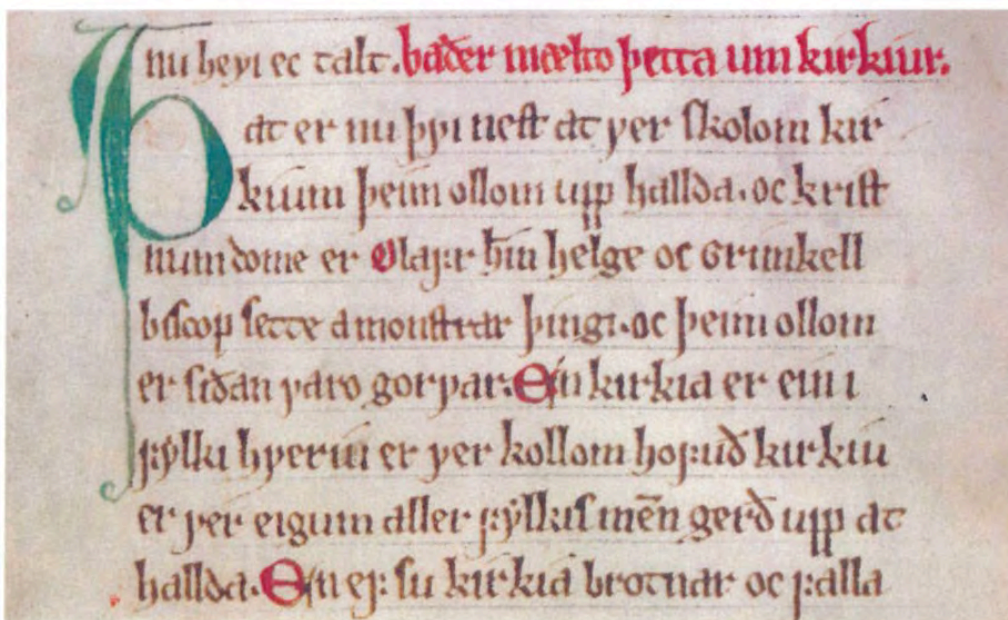 nu heꝩi ec talt. baðer mælto þetta um kirkiur.
Þat er nu þꝩi neſt at ꝩer ſkolom kir
kium þeim ollom upp hallda. oc kriſt
num dome er Olaꝼr hin helge oc Grimkell
bſcop ſette a monſtrar þingi. oc þeim ollom
er ſiðan ꝩaro gorꝩar. Ein kirkia er ein i
ꝼẏlki hꝩeriu er ꝩer kollom hoꝼuð kirkiu
er ꝩer eigum aller ꝼẏlkiſ men̅ gerð upp at
hallda. En eꝼ ſu kirkia brotnar oc ꝼalla